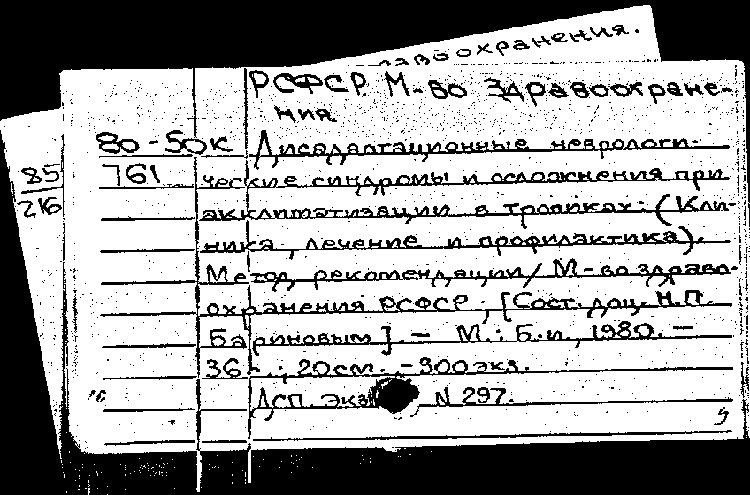 авоохранения.
РСФСР М-во Здравоохране-
ния
80-50к Дисадаптационные неврологи-
761 ческие синдромы и осложнения при
акклиматизации в тропиках: (Кли-
ника, лечение и профилактика).
Метод. рекомендации / М-во здраво-
охранения РСФСР; [Сост. доц. Н.П.
Бариновым]. - М.: Б.и., 1980. -
36 с.; 20 см. - 300 экз.
Дсп. Экз N 297.
85
216